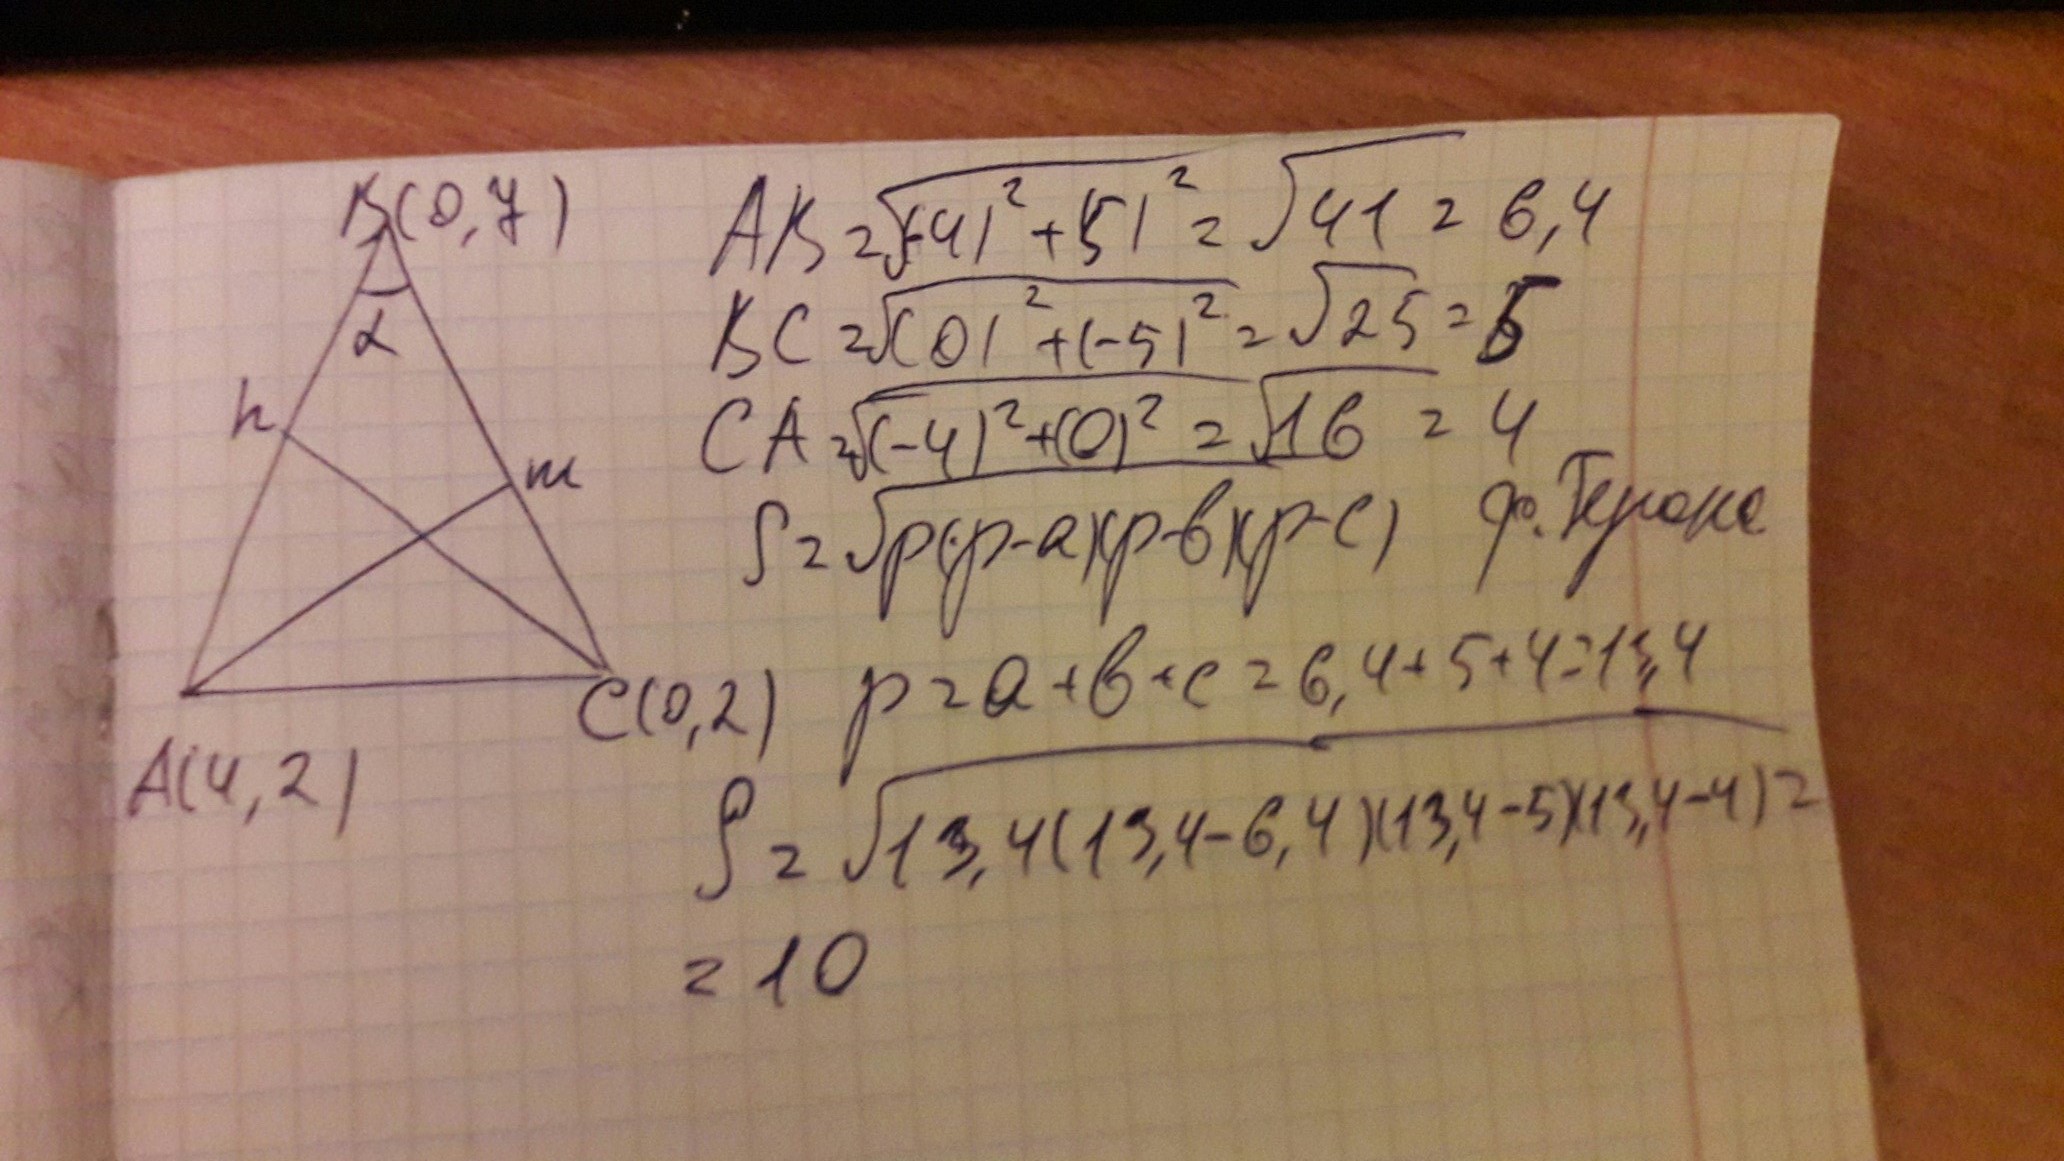 B(0,7)
α
h
m
C(0,2)
A(4,2)
AB = √(-4)² + 5)² = √41 = 6,4
BC = √(0)² + (-5)² = √25 = 5
CA = √(-4)² + (0)² = √16 = 4
S = √p(p-a)(p-b)(p-c) ф. Герона
p = a + b + c = 6,4 + 5 + 4 = 13,4
S = √13,4(13,4-6,4)(13,4-5)(13,4-4) =
= 10